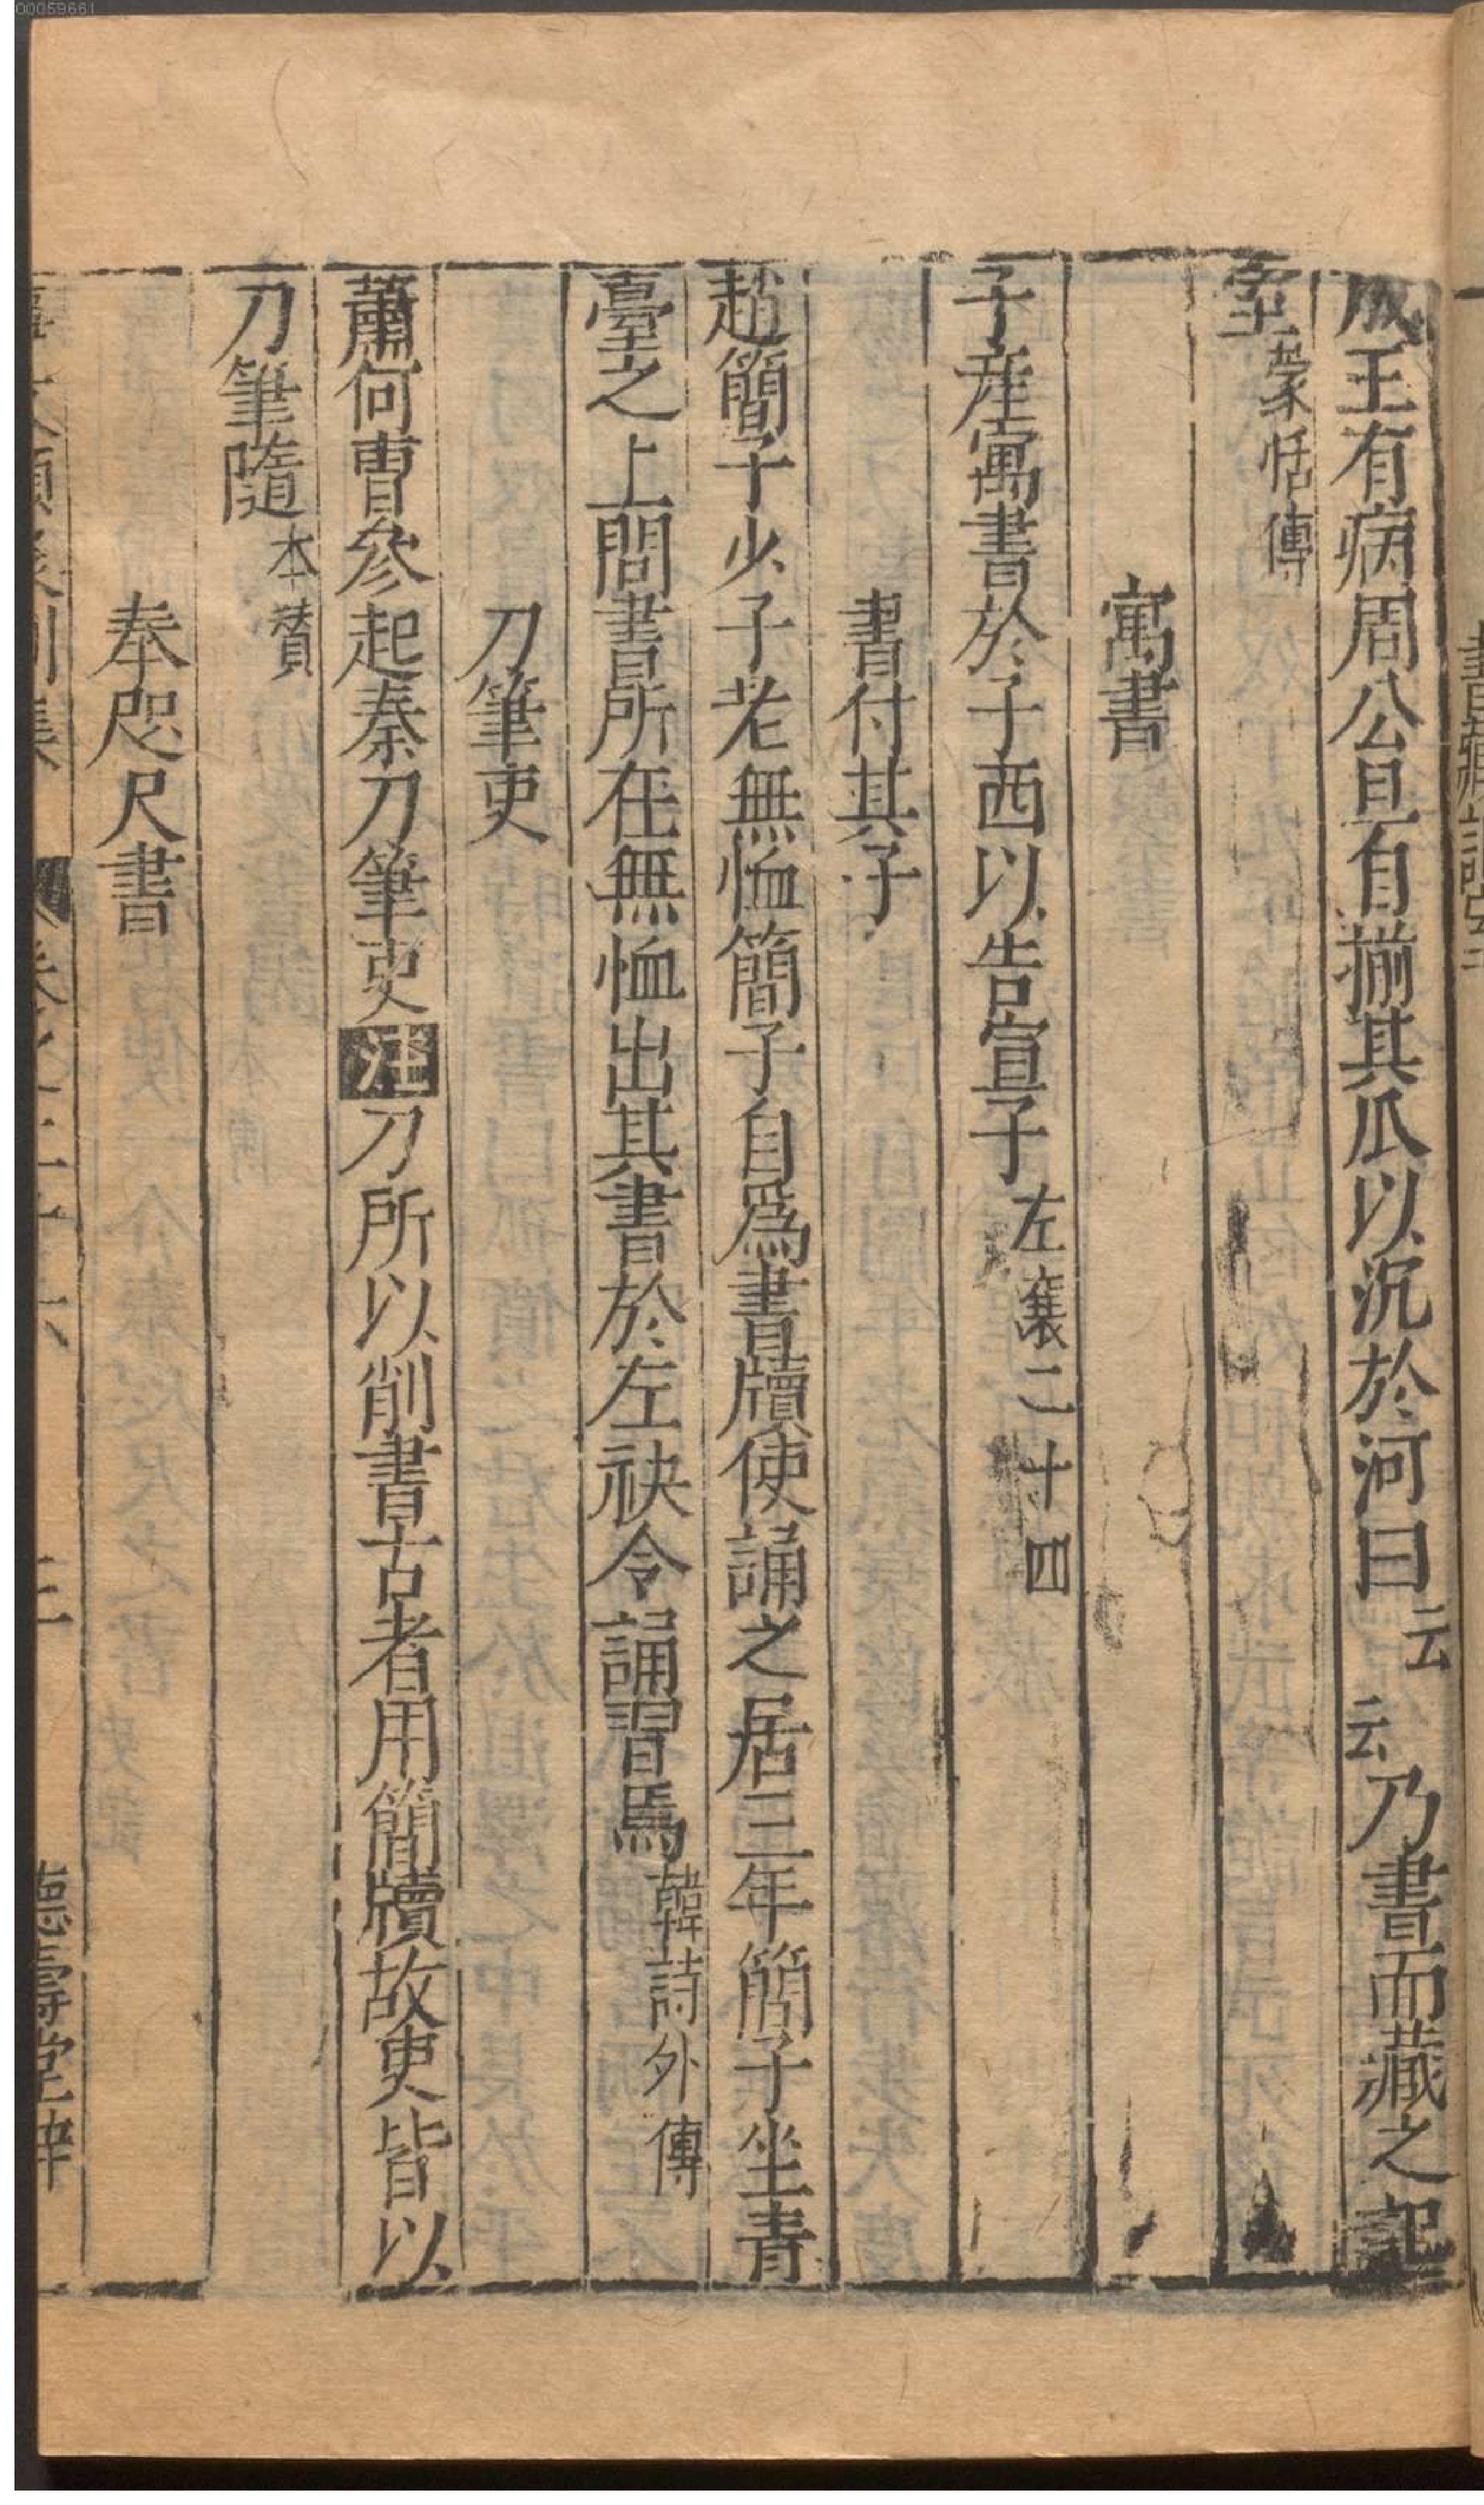 00059661
成王有病周公旦自揃其爪以沉於河曰云云乃書而藏之記
室蒙恬傳
寓書
子產寓書於子西以告宣子左襄二十四
書付其子
趙簡子少子老無恤簡子自爲書牘使誦之居三年簡子坐青
臺之上問書所在無恤出其書於左袂令誦習焉韓詩外傳
刀筆吏
蕭何曹參起秦刀筆吏注刀所以削書古者用簡牘故吏皆以
刀筆隨本贊
奉咫尺書
德壽堂梓